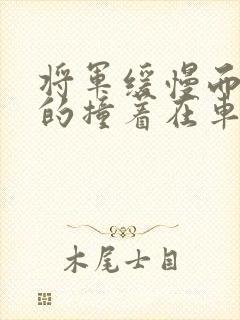 将军缓慢而
的撞着在車
木尾士目